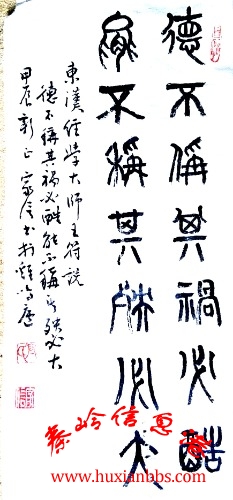 德不偁其禍必酷
能不稱其殃必大
東漢經學大師王符說
德不稱其禍必酷能不稱其殃必大
甲辰新正
秦岭信息
www.huxianbbs.com